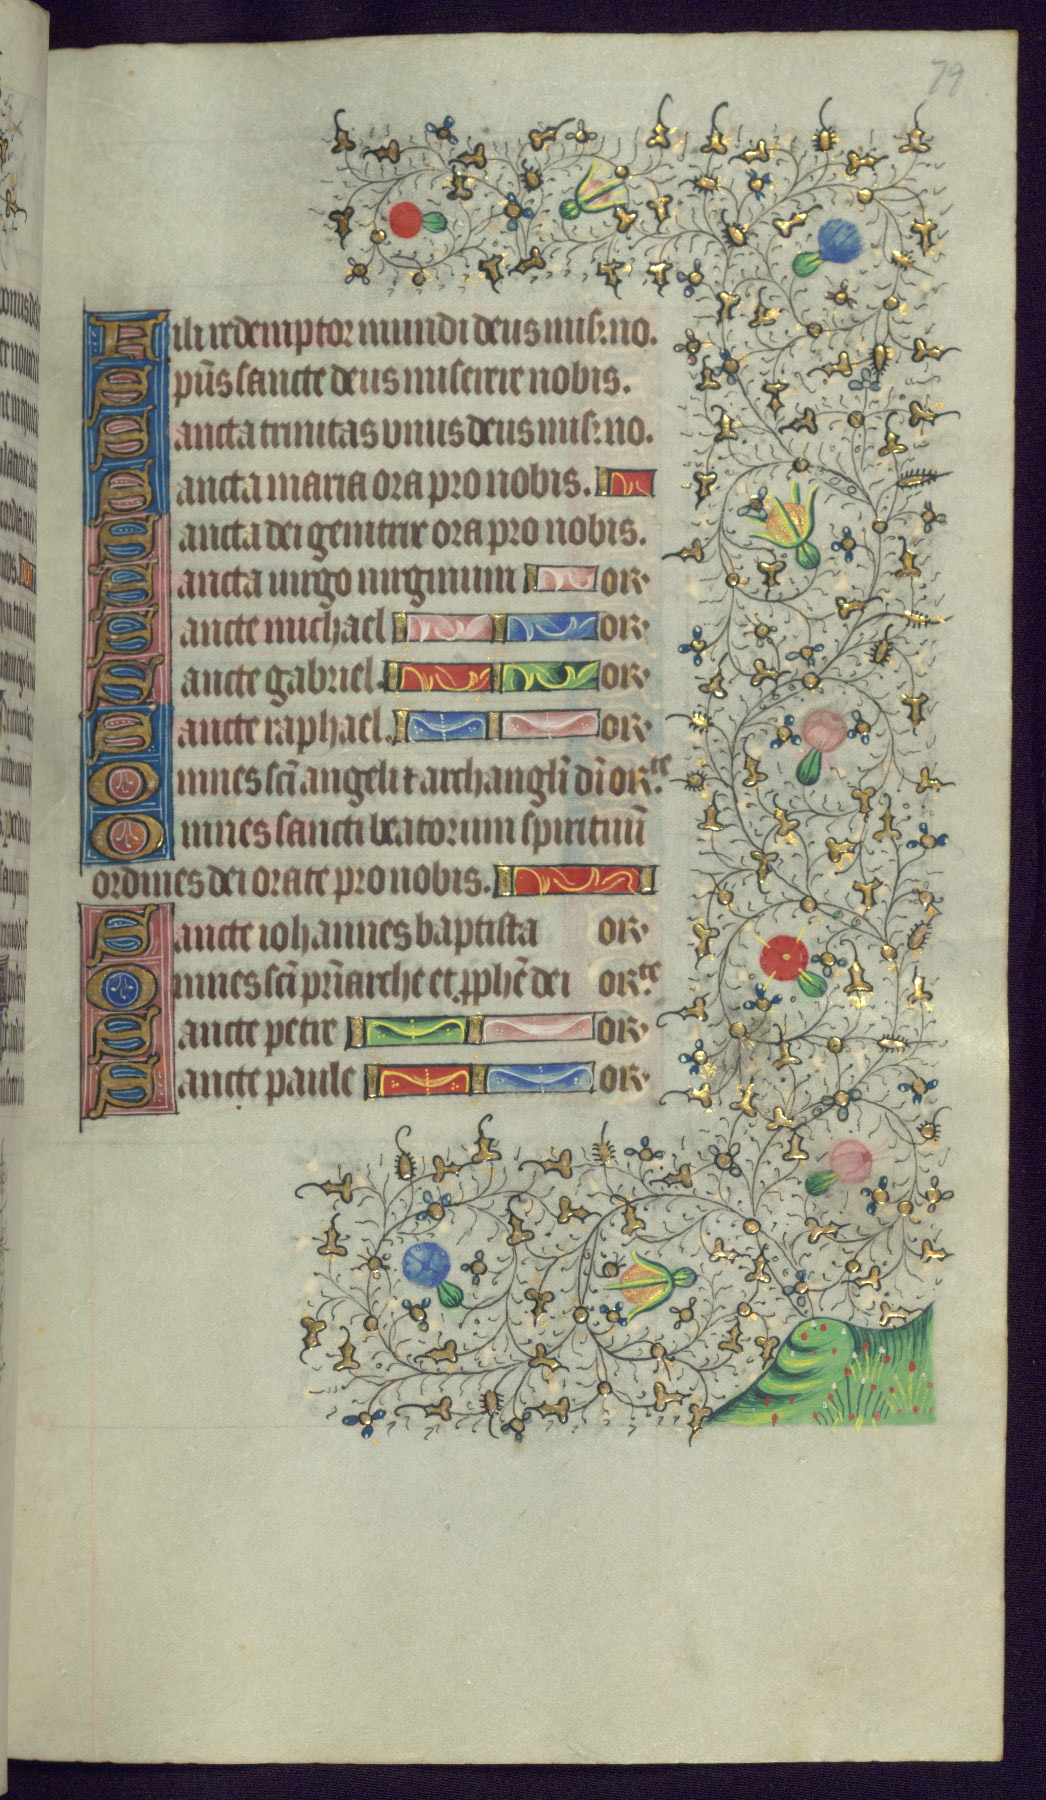 79
Fili redemptor mundi deus mis. no.
Sp̄us sancte deus miserere nobis.
Sancta trinitas unus deus mis. no.
Sancta maria ora pro nobis.
Sancta dei genitrix ora pro nobis.
Sancta uirgo uirginum or
Sancte michael or
Sancte gabriel. or
Sancte raphael. or
Omnes sc̄i angeli ⁊ archangl̄i dī or.te
Omnes sancti beatorum spirituū
ordines dei orate pro nobis.
Sancte iohannes baptista or
Omnes sc̄i pr̄iarche et ꝓphē dei or.te
Sancte petre or
Sancte paule or